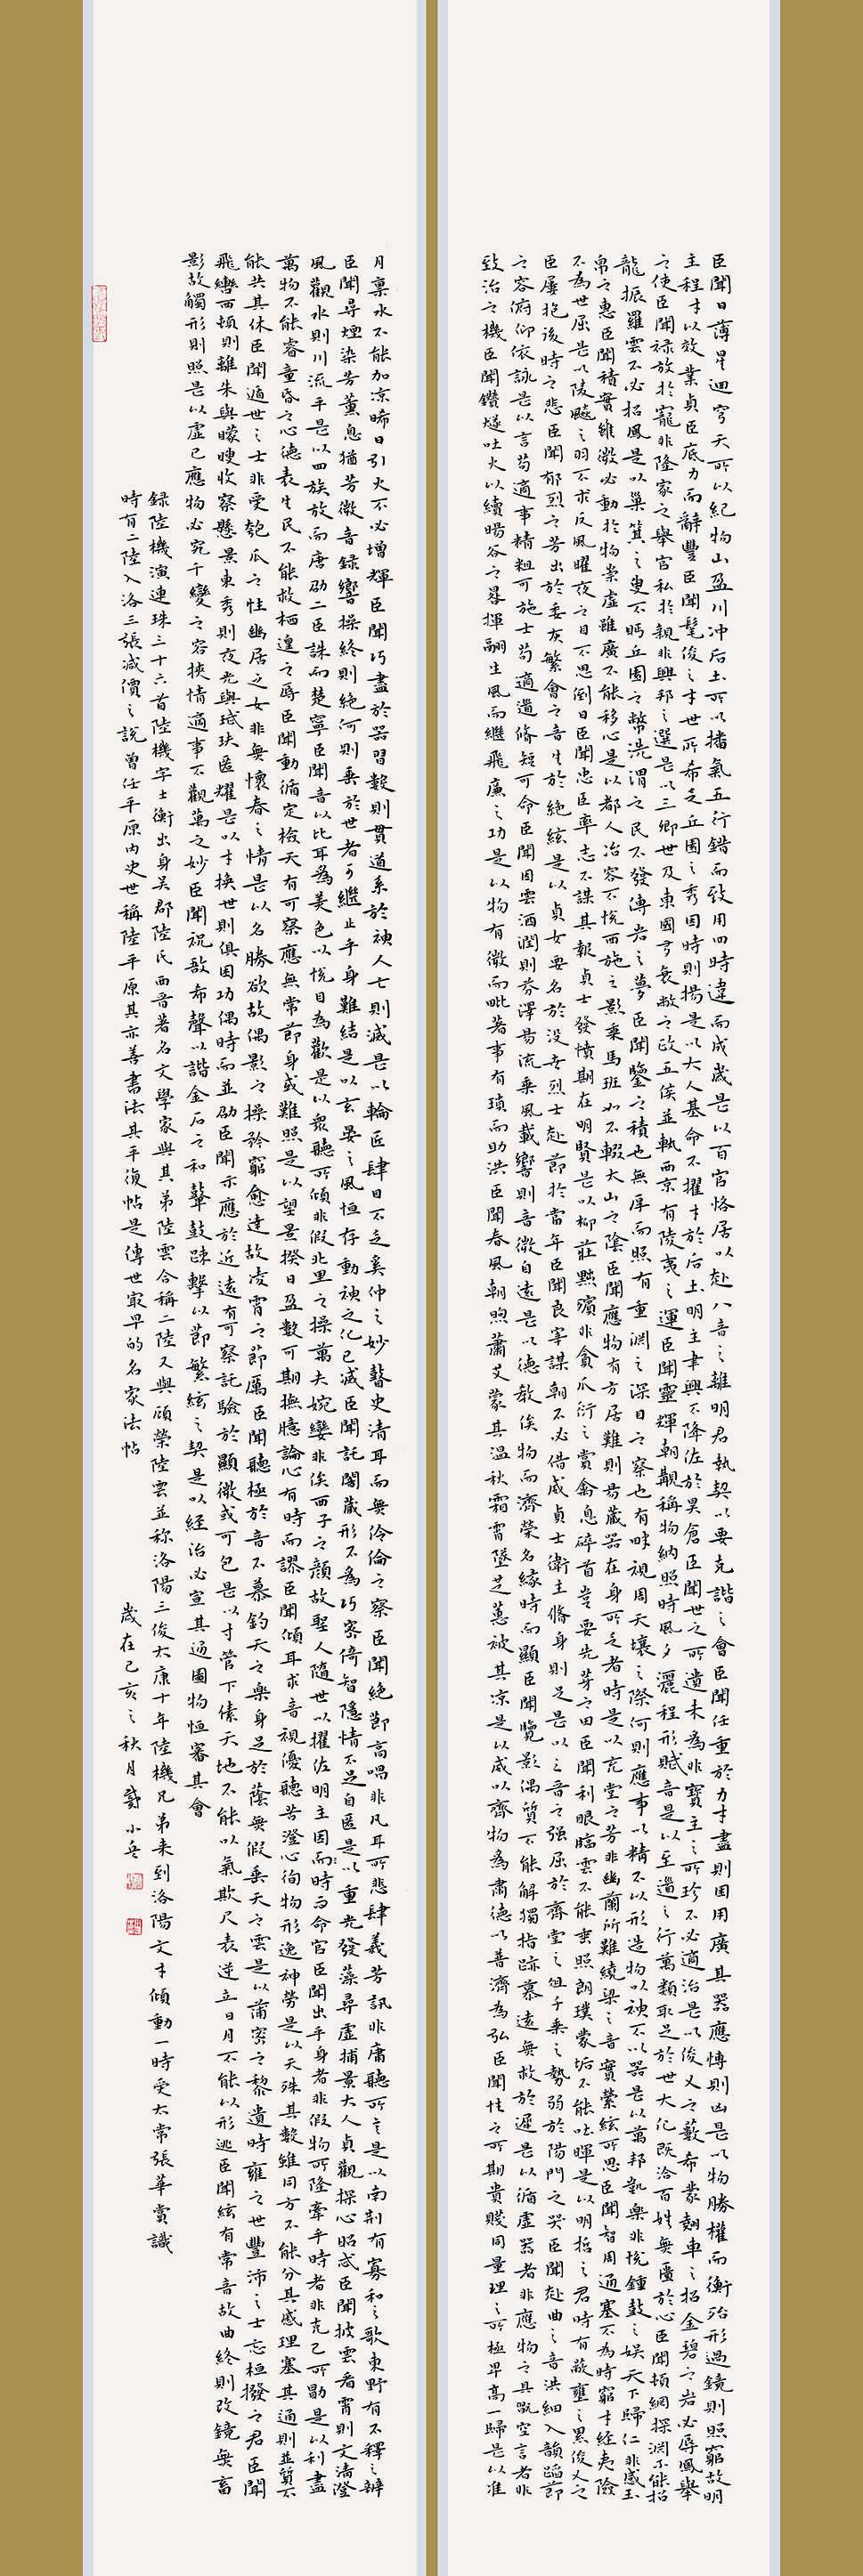 臣聞日薄星迴穹天所以紀物山盈川冲后土所以播氣五行錯而致用四時違而成歲是以百官恪居以赴八音之離明君執契以要克諧之會臣聞任重於力才盡則困用廣其器應博則凶是以物勝權而衡殆形過鏡則照窮故明
主程才以效業貞臣底力而辭豐臣聞髦俊之才世所希乏丘園之秀因時則揚是以大人基命不擢才於后土明主聿興不降佐於昊倉臣聞世之所遺未為非寶主之所珍不必適治是以俊乂之藪希蒙翹車之招金碧之岩必辱鳳舉
之使臣聞祿放於寵非隆家之舉官私於親非興邦之選是以三卿世及東國多衰敝之政五侯並軌西京有陵夷之運臣聞靈輝朝覯稱物納照時風夕灑程形賦音是以至道之行萬類取足於世大化既洽百姓無匱於心臣聞頓網探淵不能招
龍振羅雲不必招鳳是以巢箕之叟不眄丘園之幣洗渭之民不發傅岩之夢臣聞鑒之積也無厚而照有重淵之深目之察也有畔視周天壤之際何則應事以精不以形造物以神不以器是以萬邦凱樂非悅鍾鼓之娛天下歸仁非感玉
帛之惠臣聞積實雖微必動於物崇虛雖廣不能移心是以都人冶容不悅西施之影乘馬班如不輟太山之陰臣聞應物有方居難則易藏器在身所乏者時是以充堂之芳非幽蘭所難繞梁之音實縈絃所思臣聞智周通塞不為時窮才經夷險
不為世屈是以陵飇之羽不求反風曜夜之目不思倒日臣聞忠臣率志不謀其報貞士發憤期在明賢是以柳莊黜殯非貪瓜衍之賞禽息碎首豈要先茅之田臣聞利眼臨雲不能垂照朗璞蒙垢不能吐暉是以明哲之君時有蔽壅之累俊乂之
臣屢抱後時之悲臣聞郁烈之芳出於委灰繁會之音生於絕絃是以貞女要名於沒世烈士赴節於當年臣聞良宰謀朝不必借威貞士衛主脩身則足是以三晉之强屈於齊堂之俎千乘之勢弱於陽門之哭臣聞赴曲之音洪細入韻蹈節
之容俯仰依詠是以言苟適事精粗可施士苟適道脩短可命臣聞因雲洒潤則芬澤易流乘風載響則音徽自遠是以德教俟物而濟榮名緣時而顯臣聞覽影偶質不能解獨指跡慕遠無救於遲是以循虛器者非應物之具翫空言者非
致治之機臣聞鑽燧吐火以續暘谷之晷揮翮生風而繼飛廉之功是以物有微而毗著事有瑣而助洪臣聞春風朝煦蕭艾蒙其温秋霜宵墜芝蕙被其凉是以威以齊物為肅德以普濟為弘臣聞性之所期貴賤同量理之所極卑高一歸是以准
月稟水不能加凉晞日引火不必增輝臣聞巧盡於器習數則貫道系於神人亡則滅是以輪匠肆目不乏奚仲之妙瞽史清耳而無伶倫之察臣聞絕節高唱非凡耳所悲肆義芳訊非庸聽所善是以南荆有寡和之歌東野有不釋之辯
臣聞尋煙染芬薰息猶芳徵音録響操終則絶何則垂於世者可繼止乎身難結是以玄晏之風恒存動神之化已滅臣聞託闇藏形不為巧密倚智隱情不足自匿是以重光發藻尋虛捕景大人貞觀探心昭忒臣聞披雲看霄則天文清澄
風觀水則川流平是以四族放而唐劭二臣誅而楚寧臣聞音以比耳為美色以悅目為歡是以衆聽所傾非假北里之操萬夫婉孌非俟西子之顏故聖人隨世以擢佐明主因時而命官臣聞出乎身者非假物所隆牽乎時者非克己所勖是以利盡
萬物不能睿童昏之心德表生民不能救栖遑之辱臣聞動循定檢天有可察應無常節身或難照是以望景揆日盈數可期撫臆論心有時而謬臣聞傾耳求音視優聽苦澄心徇物形逸神勞是以天殊其數雖同方不能分其慼理塞其通則並質不
能共其休臣聞遁世之士非受匏瓜之性幽居之女非無懷春之情是以名勝欲故偶影之操矜窮愈達故凌霄之節厲臣聞聽極於音不慕鈞天之樂身足於蔭無假垂天之雲是以蒲密之黎遺時雍之世豐沛之士忘桓撥之君臣聞
飛轡西頓則離朱與矇瞍收察懸景東秀則夜光與珷玞匿耀是以才換世則俱困功偶時而並劭臣聞示應於近遠有可察託驗於顯微或可包是以寸管下傃天地不能以氣欺尺表逆立日月不能以形逃臣聞絃有常音故曲終則改鏡無畜
影故觸形則照是以虛己應物必究千變之容挾情適事不觀萬之妙臣聞祝敔希聲以諧金石之和鼙鼓踈擊以節繁絃之契是以經治必宣其通圖物恒審其會
録陸機演連珠三十六首陸機字士衡出身吴郡陸氏西晋著名文學家與其弟陸雲合稱二陸又與顧榮陸雲並称洛陽三俊太康十年陸機兄弟来到洛陽文才傾動一時受太常張華賞識
時有二陸入洛三張减價之說曾任平原内史世稱陸平原其亦善書法其平復帖是傳世㝡早的名家法帖 歲在己亥之秋月 小兵